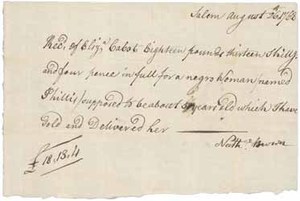 Salem August
Rec.d of Eliz.a Cabot Eighteen pounds thirteen Shill.gs
and four pence in full for a negro Woman named
Phillis supposed to be about years old which I have
Sold and Delivered her
Nath.l Brown
£18.13.4